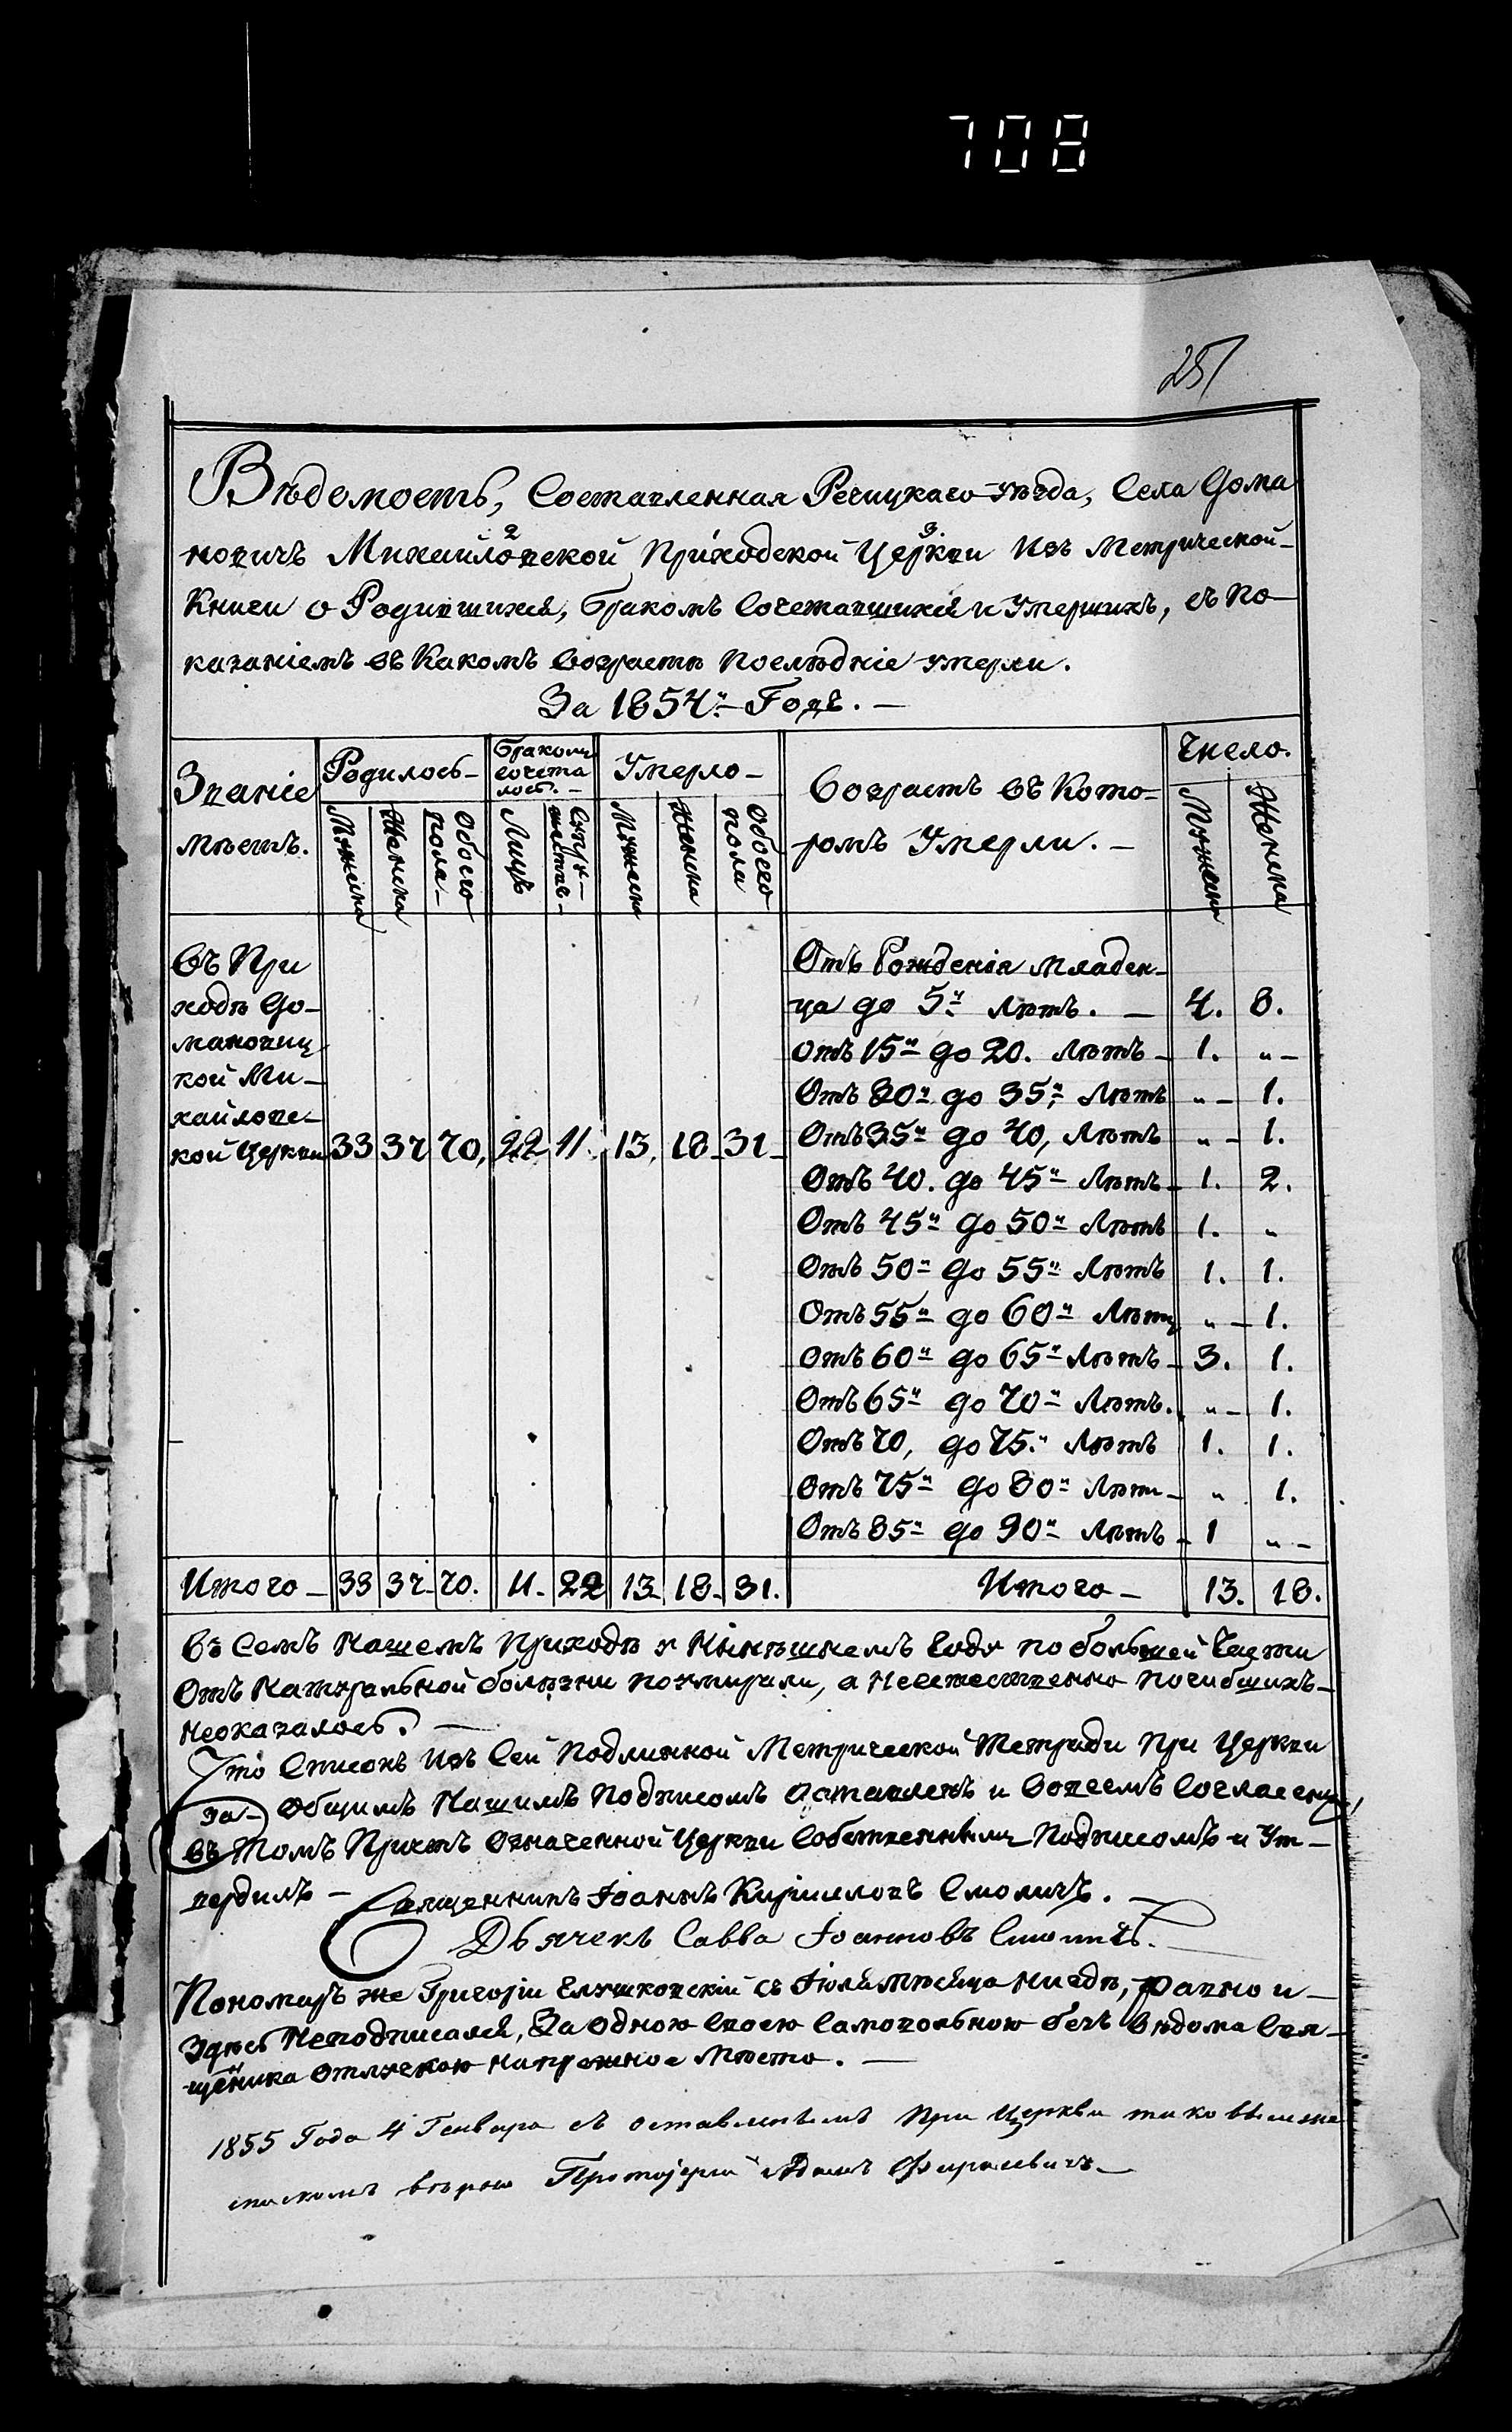 708
251
Вѣдомость, Составленная Речицкаго уѣзда, Села Дома
новичъ Михайловской Приходской Церкви Изъ Метрической
Книги о Родившихся, бракомъ Сочетавшихся и Умершихъ, съ по
казаніемъ въ Какомъ возрастѣ послѣдніе умерли.
За 1854й Годъ.
Званіе мѣстъ.
Родилось
Бракомъ сочета лось.
Умерло
Возрастъ въ Кото-
ромъ Умерли.
Число.
Мужеска Женска Обоего пола Лицъ Супружествъ Мужеска Женска Обоего пола Мужеска Женска
Въ При
ходѣ До-
мановиц
кой Ми-
хайловс-
кой Церкви 33 37 70, 22 11. 13. 18 31
Отъ Рожденія младен-
ца до 5й лѣтъ. 4. 8.
Отъ 15и до 20. Лѣтъ 1. "
Отъ 30и до 35и Лѣтъ " 1.
Отъ 35и до 40, Лѣтъ " 1.
Отъ 40. до 45и Лѣтъ 1. 2.
Отъ 45и до 50и Лѣтъ 1. "
Отъ 50и до 55и Лѣтъ 1. 1.
Отъ 55и до 60и Лѣтъ " 1.
Отъ 60и до 65и Лѣтъ 3. 1.
Отъ 65и до 70и Лѣтъ. " 1.
Отъ 70, до 75и Лѣтъ 1. 1.
Отъ 75и до 80и Лѣтъ " 1.
Отъ 85и до 90и Лѣтъ 1 "
Итого 33 37 70. 11. 22 13 18 31. Итого 13. 18.
Въ Семъ Нашемъ Приходѣ у Нынѣшнемъ Году по большей Части
Отъ Натуральной болѣзни поумирали, а Неестественно погибшихъ
неоказалось.
Что Списокъ Изъ Сей Подлинной Метрической Тетради При Церкви
за Общимъ Нашимъ Подписомъ оставленъ и Вовсемъ Согласенъ,
въ Томъ Причтъ Означенной Церкви Собственнымъ Подписомъ и Ут-
вердилъ Священникъ Іоаннъ Кирилловъ Смоличъ.
Дьячекъ Савва Іоанновъ Смоличъ.
Пономарь же Григорій съ Іюля мѣсяца нигдѣ, равно и
Здѣсь Неподписался, За одною своею Самовольною безъ вѣдома Свя-
щенника отлучкою на Мѣсто.
1855 Года 4 Генваря съ оставленымъ при Церкви таковымже
спискомъ вѣрно Протоіерей